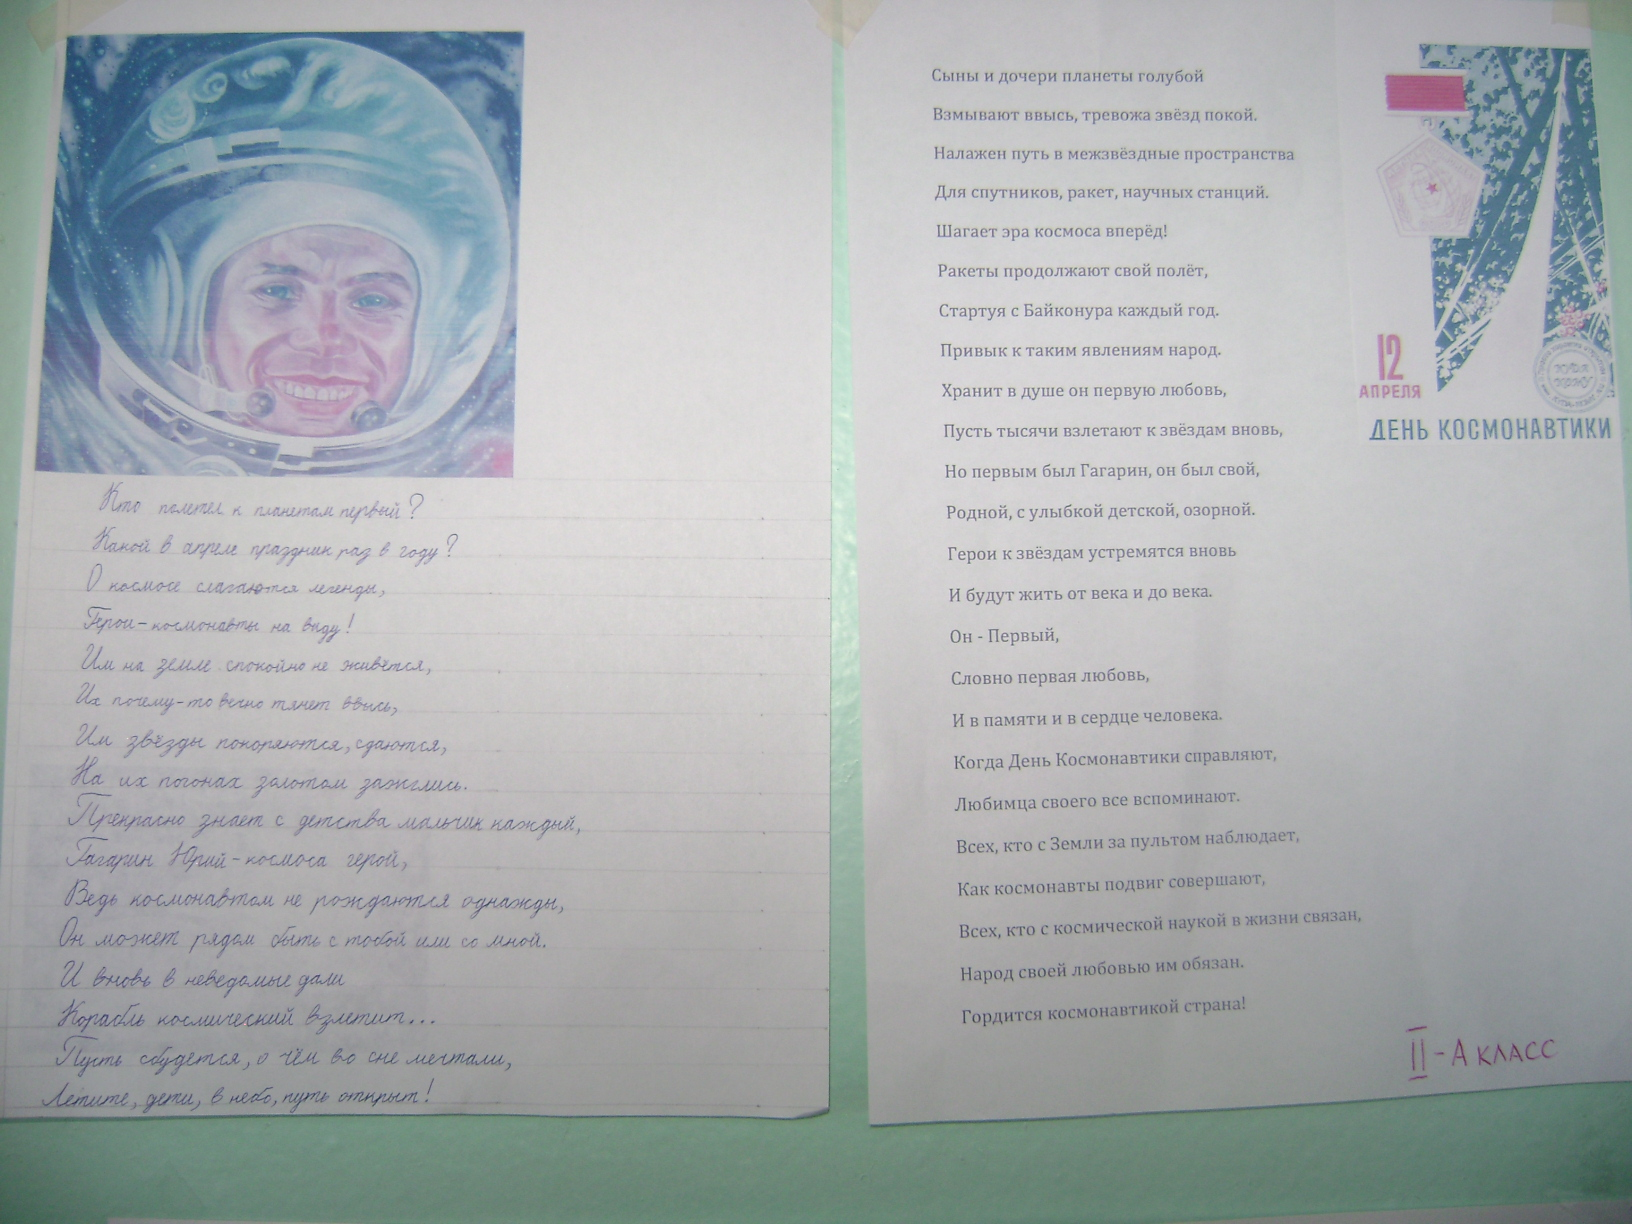 Кто полетел к планетам первый?
Какой в апреле праздник раз в году?
О космосе слагаются легенды,
Герои-космонавты на виду!
Им на земле спокойно не живётся,
Их почему-то вечно тянет ввысь,
Им звёзды покоряются, сдаются,
На их погонах золотом зажглись.
Прекрасно знает с детства мальчик каждый,
Гагарин Юрий-космоса герой,
Ведь космонавтом не рождаются однажды,
Он может рядом быть с тобой или со мной.
И вновь в неведомые дали
Корабль космический взлетит...
Пусть сбудется, о чём во сне мечтали,
Летите, дети, в небо, путь открыт!
Сыны и дочери планеты голубой
Взмывают ввысь, тревожа звёзд покой.
Налажен путь в межзвёздные пространства
Для спутников, ракет, научных станций.
Шагает эра космоса вперёд!
Ракеты продолжают свой полёт,
Стартуя с Байконура каждый год.
Привык к таким явлениям народ.
Хранит в душе он первую любовь,
Пусть тысячи взлетают к звёздам вновь,
Но первым был Гагарин, он был свой,
Родной, с улыбкой детской, озорной.
Герои к звёздам устремятся вновь
И будут жить от века и до века.
Он - Первый,
Словно первая любовь,
И в памяти и в сердце человека.
Когда День Космонавтики справляют,
Любимца своего все вспоминают.
Всех, кто с Земли за пультом наблюдает,
Как космонавты подвиг совершают,
Всех, кто с космической наукой в жизни связан,
Народ своей любовью им обязан.
Гордится космонавтикой страна!
12
АПРЕЛЯ
ДЕНЬ КОСМОНАВТИКИ
II-А КЛАСС